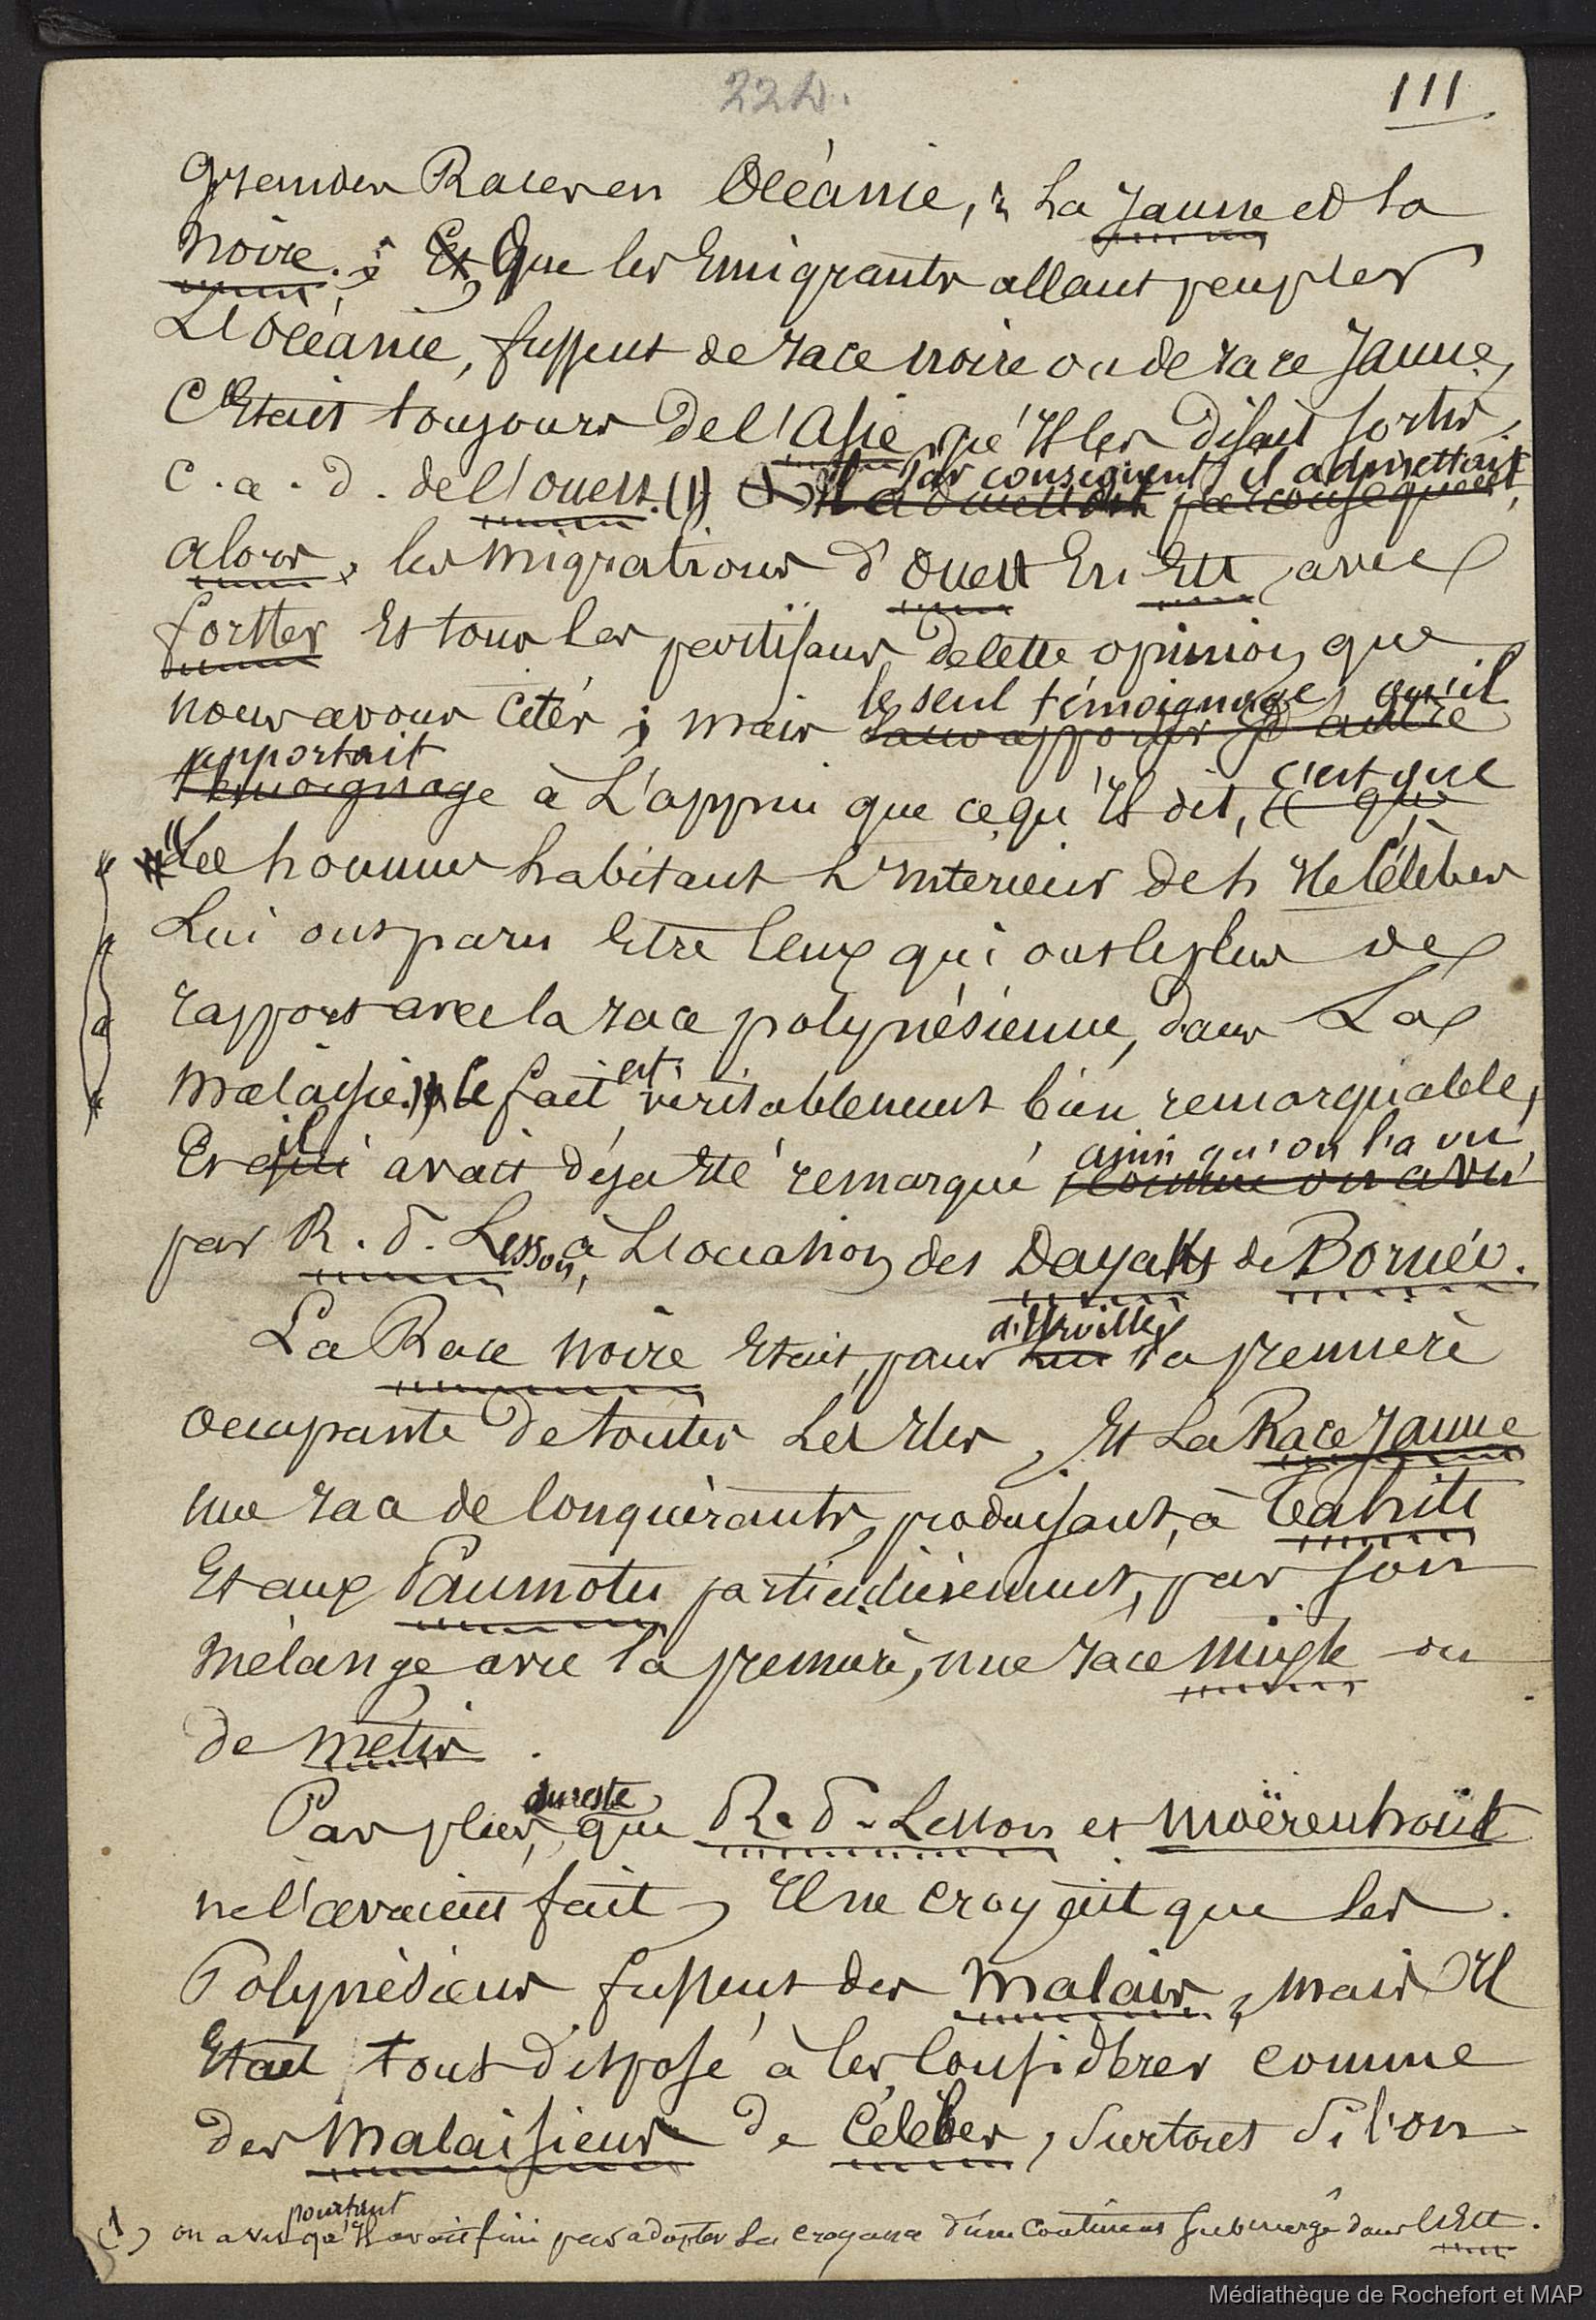 224.
111
grandes Races en Océanie, la Jaune et la
Noire. ; Et Que les Emigrants allant peupler
L'Océanie, fussent de race noire ou de race Jaune,
C'Etait toujours de l'Asie, qu'Il les disait sortir,
c.a.d. de l'ouest. (1) Par conséquent, il admettait
Il admettait par conséquent,
alors, les migrations d'ouest En Est, avec
forster Et tous les partisans de cette opinion, que
nous avons cités ; mais le seul témoignage, qu'il
sans apporter d'autre
apportait
témoignage à L'appui que ce qu'Il dit, c'est que
"Les hommes habitant L'Interieur de l'Ile Célèbes
Lui ont paru Etre ceux qui ont le plus de
rapport avec la race polynésienne, dans La
malaisie." le fait est véritablement bien remarquable,
Et qui il avait déja Eté remarqué ainsi qu'on l'a vu
comme on a vu
par R. P. Lesson, à L'occasion, des Dayaks de Bornéo.
La Race noire Etait, pour d'Urville,
lui la première
occupante de toutes Les Iles, Et La Race Jaune
une race de Conquérants, produisant, à Tahiti
Et aux Paumotu particulièrement, par son
mélange avec la première, une race mixte ou
de métis.
Pas plus, du reste, que R. P. Lesson et Moërenhoüt
ne l'avaient fait, Il ne croyait que les
Polynésiens fussent des Malais, mais Il
Etait tout disposé à les Considérer comme
des Malaisiens de Célèbes, surtout si l'on
(1) on a vu pourtant qu'Il avait fini par adopter La croyance d'un Continent submergé dans L'Est.
Médiathèque de Rochefort et MAP